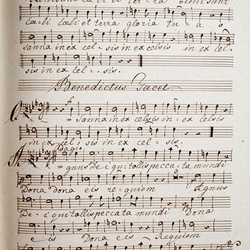 pleni sunt
cæli cæli et terra gloria tu a o
sanna in ex cel sis in ex celsis in ex cel
sis in ex cel sis.
Benedictus Tacet.
O sanna in ex celsis in ex cel sis
in ex cel sis in ex cel sis.
Agnus De i qui tollis peccata mundi
Dona dona eis re qui em Agnus
De i qui tollis peccata mundi Dona
eis Dona eis Requiem